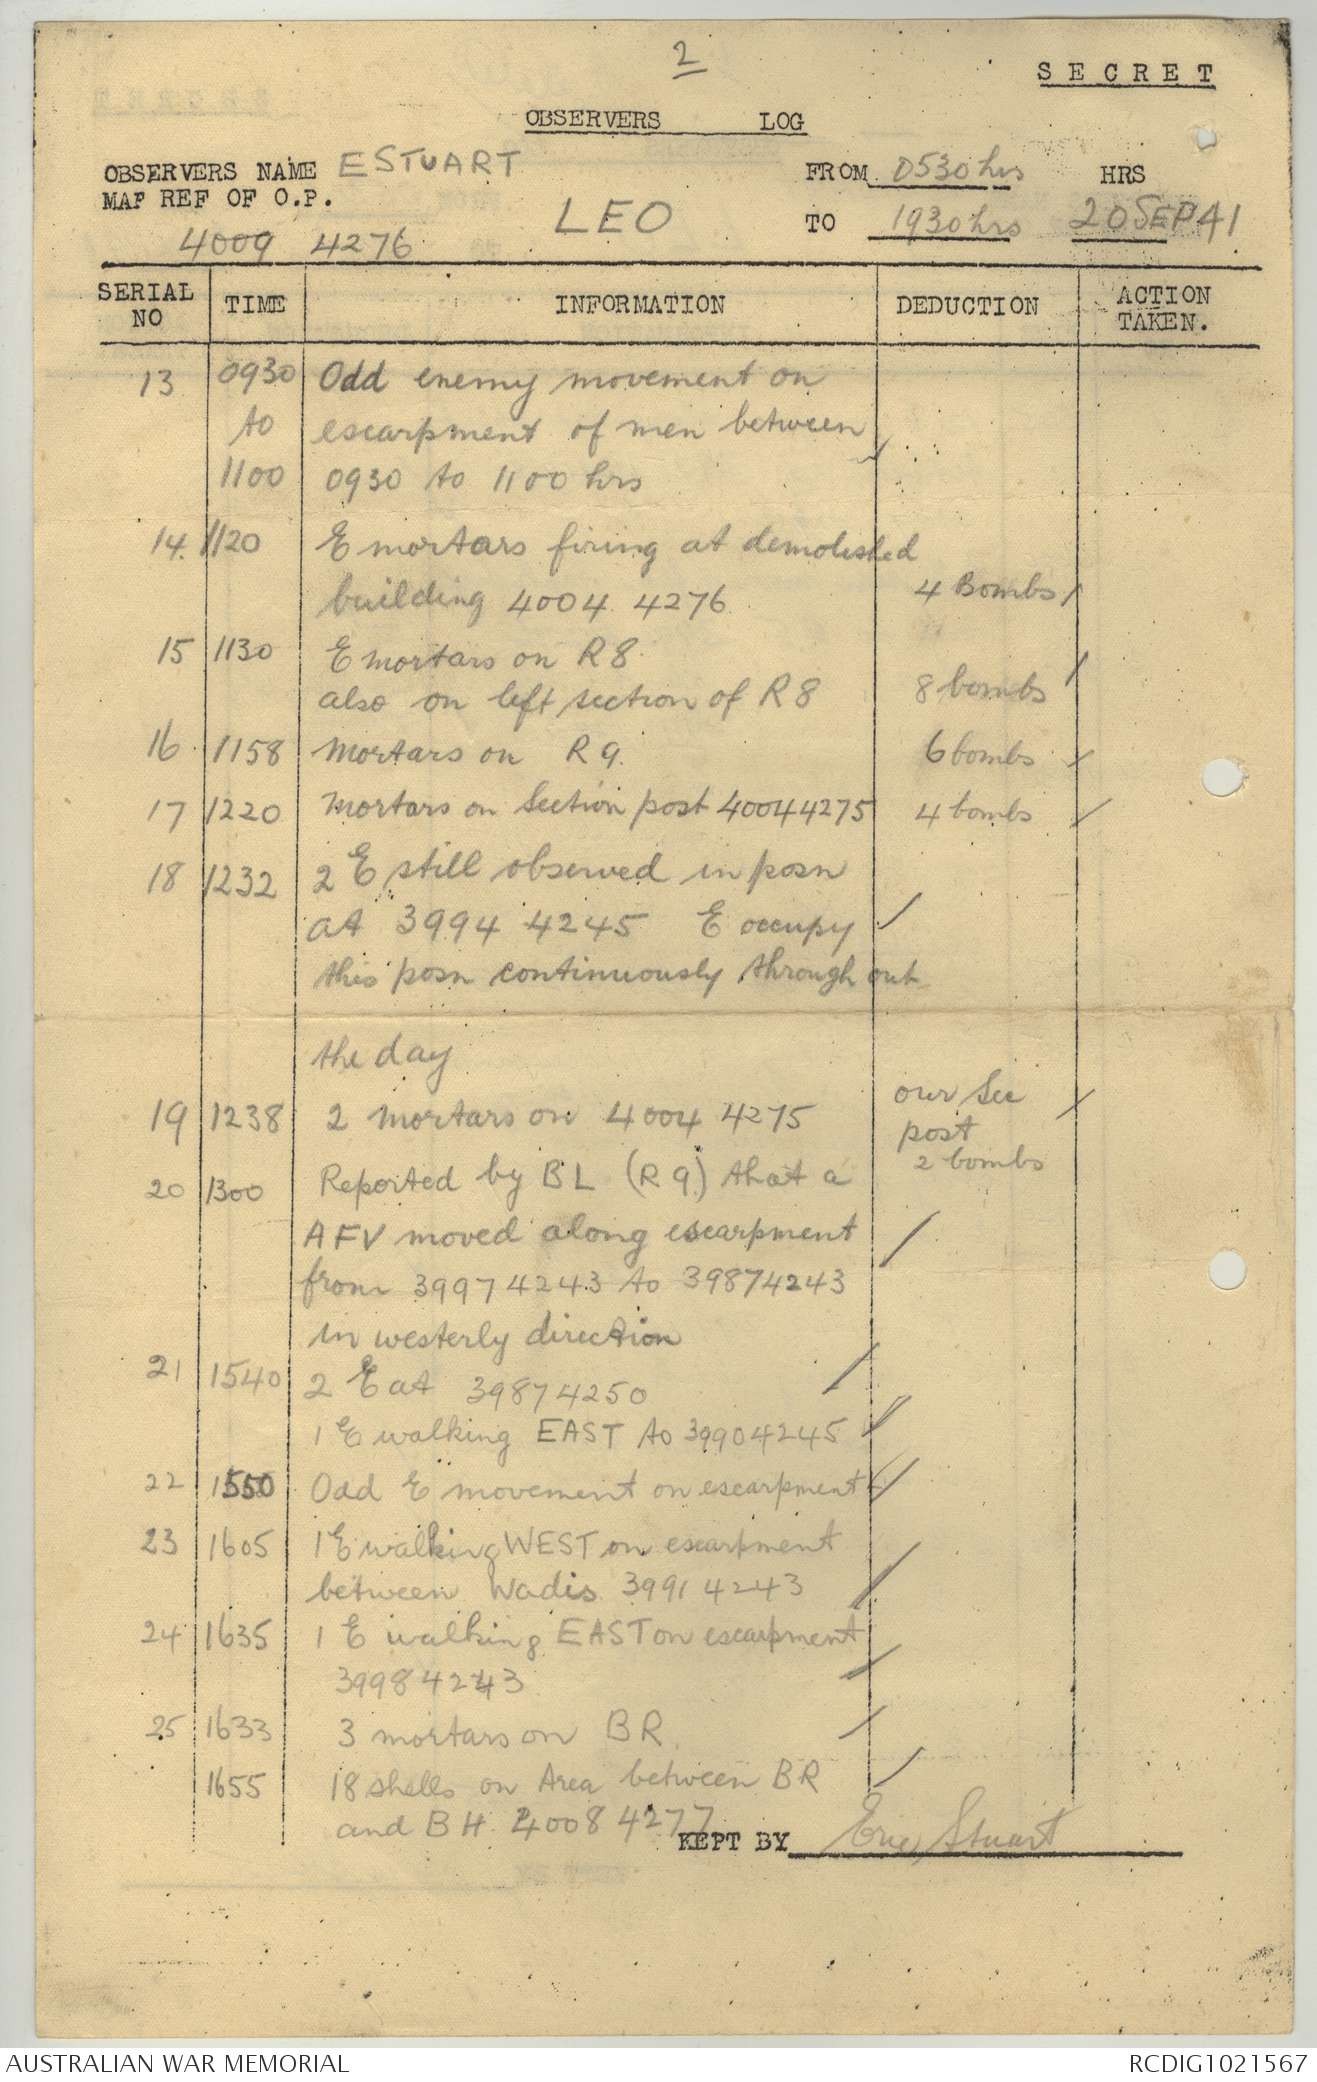 2
SECRET
OBSERVERS LOG
OBSERVERS NAME E STUART FROM 0530 hrs HRS
MAP REF OF O.P. LEO TO 1930 hrs 20 SEP 41
4009 4276
SERIAL NO TIME INFORMATION DEDUCTION ACTION TAKEN.
13 0930 Odd enemy movement on
to escarpment of men between
1100 0930 to 1100 hrs
14. 1120 E mortars firing at demolished
building 4004 4276 4 Bombs
15 1130 E mortars on R8
also on left section of R8 8 bombs
16 1158 Mortars on R9. 6 bombs
17 1220 Mortars on Section post 40044275 4 bombs
18 1232 2 E still observed in posn
at 3994 4245 E occupy
this posn continuously through out
the day
19 1238 2 mortars on 4004 4275 our Sec
post
2 bombs
20 1300 Reported by BL (R9) that a
AFV moved along escarpment
from 39974243 to 39874243
in westerly direction
21 1540 2 E at 39874250
1 E walking EAST to 39904245
22 1550 Odd E movement on escarpment
23 1605 1 E walking WEST on escarpment
between Wadis 39914243
24 1635 1 E walking EAST on escarpment
39984243
25 1633 3 mortars on BR
1655 18 shells on Area between BR
and BH. 40084277
KEPT BY Eric Stuart
AUSTRALIAN WAR MEMORIAL RCDIG1021567